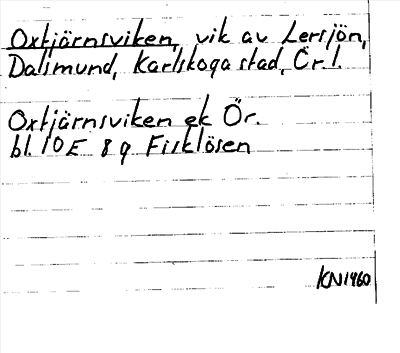 Oxtjärnsviken, vik av Lersjön,
Dalsmund, Karlskoga stad, Ör. l.
Oxtjärnsviken ek Ör.
bl. 10E 8 g Fisklösen
KN1960